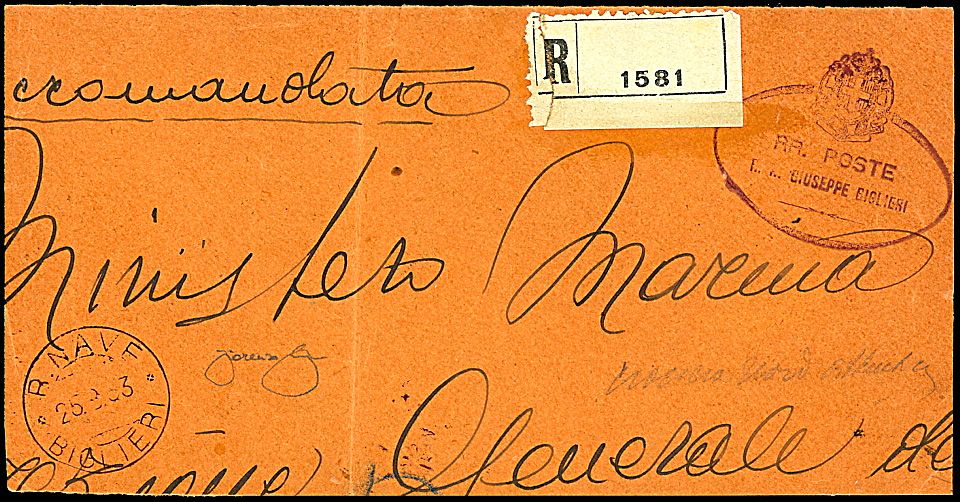 R
1581
ccomandata
RR. POSTE
GIUSEPPE BIGLIERI
Ministero Marina
R. NAVE
25.9.33
BIGLIERI
Generale de